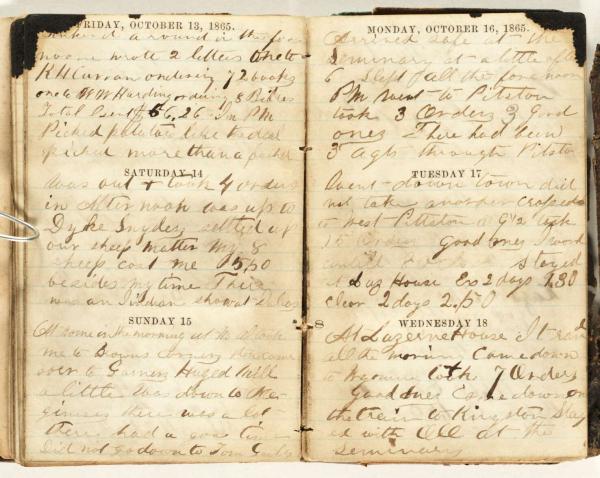 FRIDAY, OCTOBER 13, 1865.
around in the fore
noon wrote 2 letters one to
K H Curran ordering 72 books
one to W W Harding ordering 8 Bibles
Total Sent $ 56,26 In PM
Picked potatoes like the deal
picked more than a
SATURDAY 14
Was out & took 4 orders
in Afternoon was up to
Dyke Snyder settled up
our sheep matter my 8
sheep cost me 15,50
besides my time There
was an Indian show at
SUNDAY 15
At home in the morning
me to Downs Corners
over to
a little Was down to
there was a lot
there had a time
Did not go down to Tom
MONDAY, OCTOBER 16, 1865.
Arrived safe at the
Seminary at a little after
6 Slept all the fore noon
PM went to Pitston
took 3 Orders 3 Good
ones There had been
3 Agts through Pitston
TUESDAY 17
Went down town did
not take another crossed
to West Pittston at 9 1/2 took
15 Orders Good ones I work
until Stayed
at Luz House Ex 2 days 1,30
clear 2 days 2.50
WEDNESDAY 18
At Luzerne House It rain
all the morning Came down
to Wyoming took 7 Orders
Good ones Came down on
the train to Kingston Stay
ed with at the
Seminary